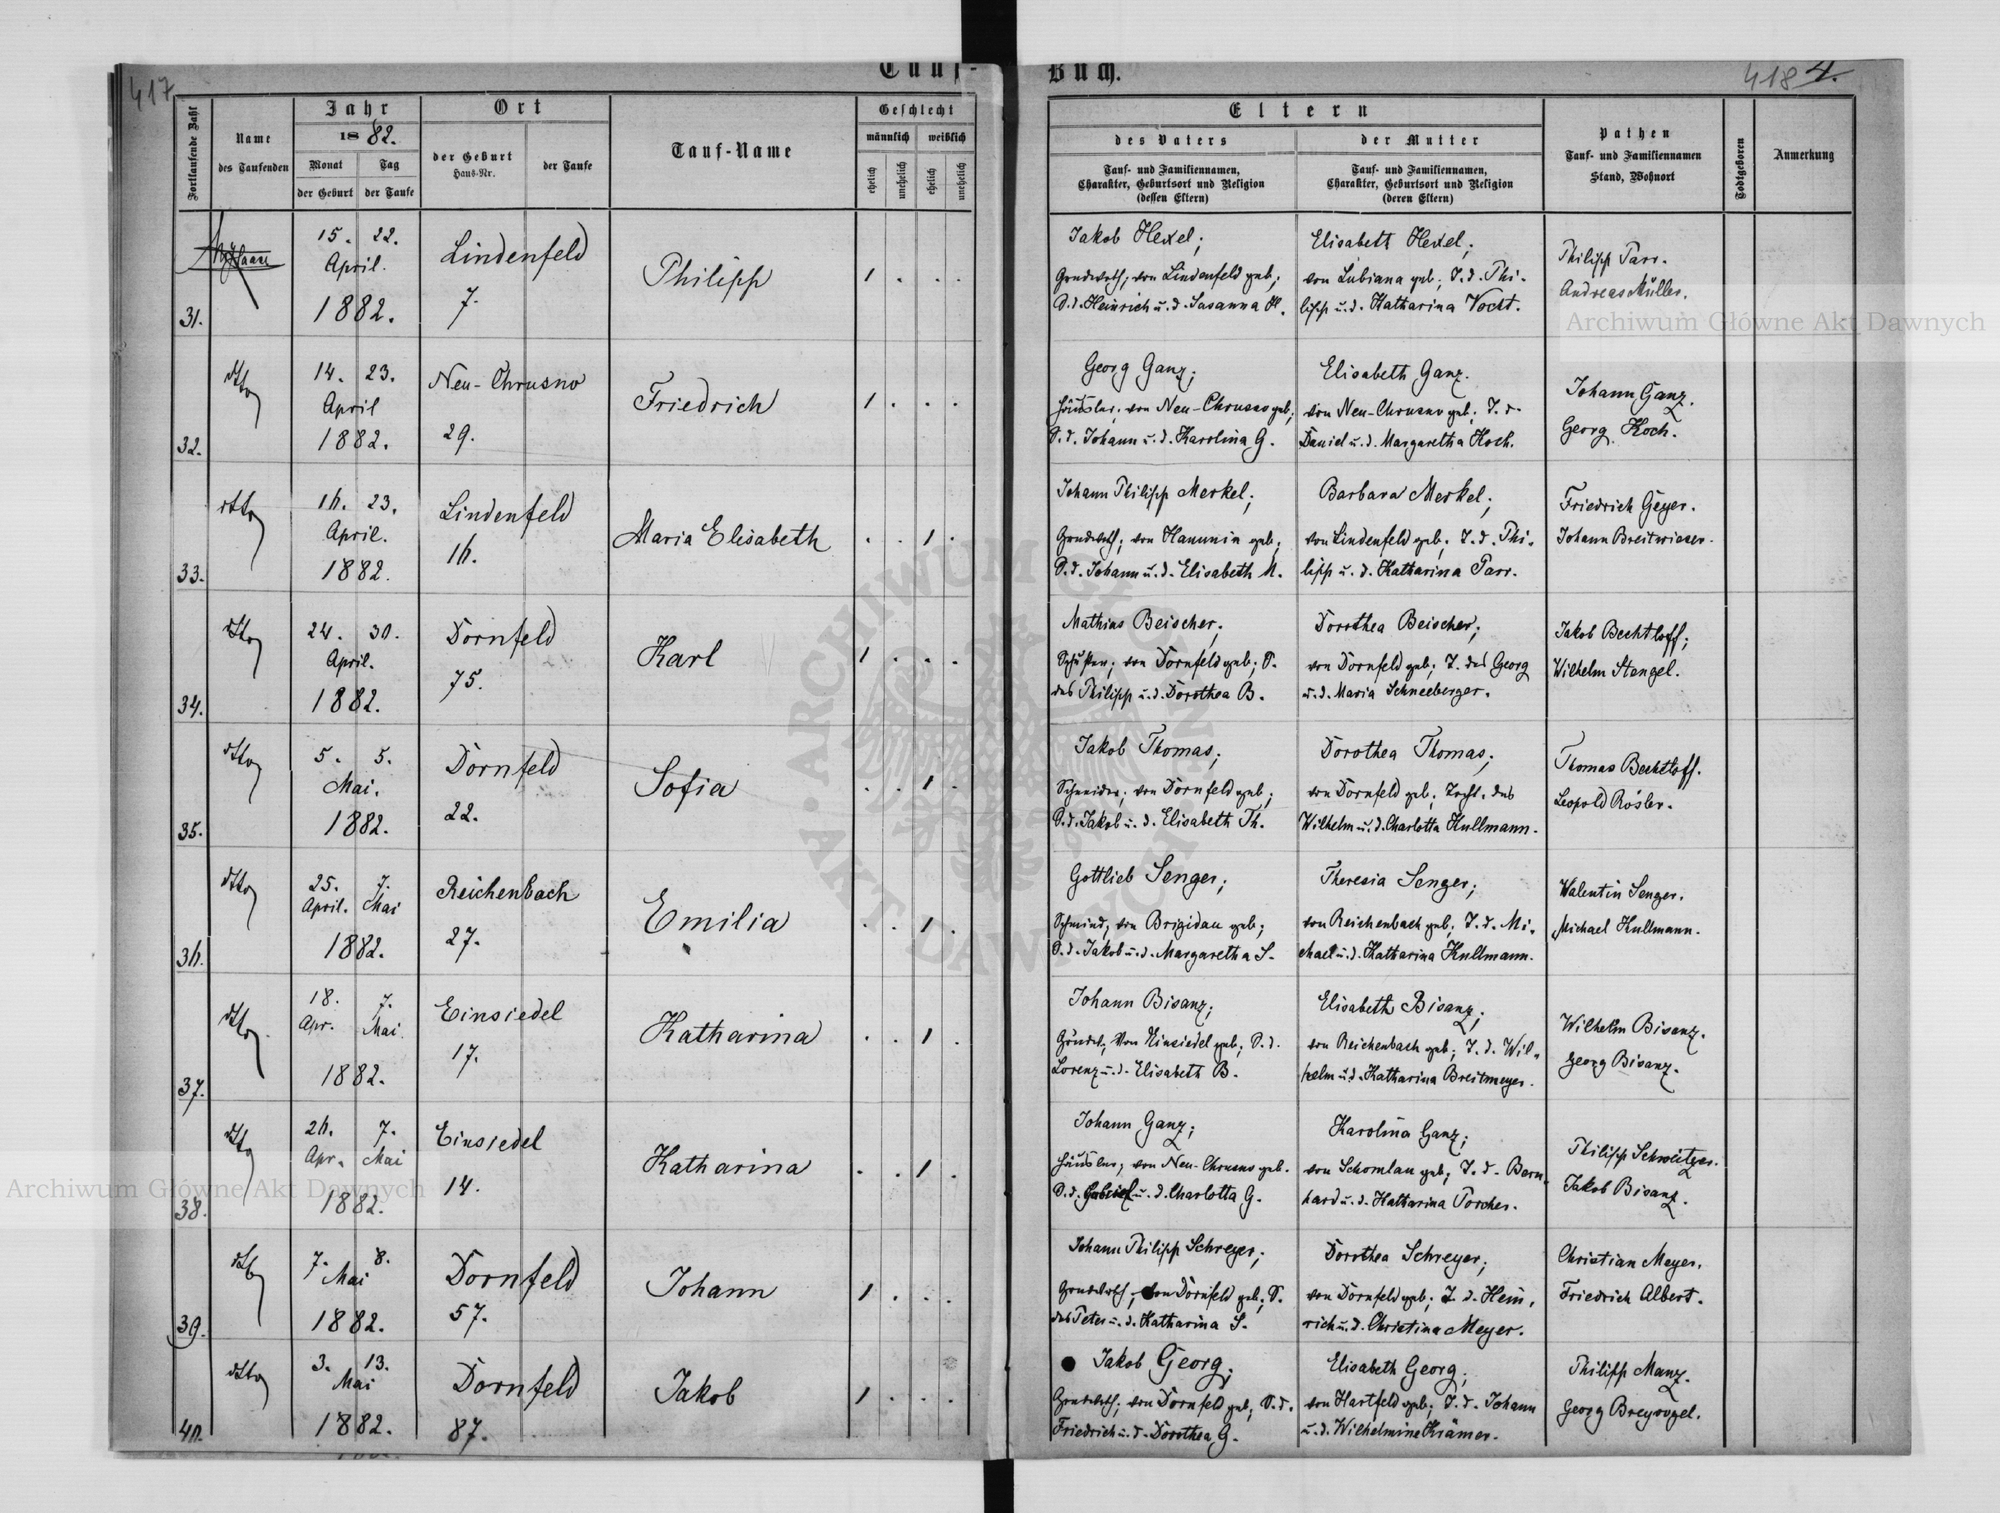 417
Tauf-
Buch.
418 4.
Fortlaufende Zahl
Name
des Taufenden
Jahr
1882.
Monat
Tag
der Geburt
der Taufe
Ort
der Geburt
Haus-Nr.
der Taufe
Tauf-Name
Geschlecht
männlich
weiblich
ehelich
unehelich
ehelich
unehelich
Eltern
des Vaters
Tauf- und Familiennamen,
Charakter, Geburtsort und Religion
(dessen Eltern)
der Mutter
Tauf- und Familiennamen,
Charakter, Geburtsort und Religion
(deren Eltern)
Pathen
Tauf- und Familiennamen
Stand, Wohnort
Todtgeboren
Anmerkung
31.
15. 22.
April.
1882.
Lindenfeld
7.
Philipp
1 . . .
Jakob Hexel;
Grundwrth; von Lindenfeld geb;
S. d. Heinrich u. d. Susanna H.
Elisabeth Hexel;
von Lubiana geb; T. d. Phi-
lipp u. d. Katharina Vocht.
Philipp Parr.
Andreas Müller.
32.
dtto
14. 23.
April
1882.
Neu-Chrusno
29.
Friedrich
1 . . .
Georg Ganz;
Häusler; von Neu-Chrusno geb;
S. d. Johann u. d. Karolina G.
Elisabeth Ganz.
von Neu-Chrusno geb; T. d.
Daniel u. d. Margaretha Koch.
Johann Ganz.
Georg Koch.
33.
dtto
16. 23.
April.
1882.
Lindenfeld
16.
Maria Elisabeth
. . 1 .
Johann Philipp Merkel;
Grundwth; von Hanunin geb;
S. d. Johann u. d. Elisabeth M.
Barbara Merkel;
von Lindenfeld geb; T. d. Phi-
lipp u. d. Katharina Parr.
Friedrich Geyer.
Johann Breitwieser.
34.
dtto
24. 30.
April.
1882.
Dornfeld
75.
Karl
1 . . .
Mathias Beischer;
Schuster; von Dornfeld geb; S.
des Philipp u. d. Dorothea B.
Dorothea Beischer;
von Dornfeld geb; T. des Georg
u. d. Maria Schneeberger.
Jakob Bechtloff;
Wilhelm Stengel.
35.
dtto
5. 5.
Mai.
1882.
Dornfeld
22.
Sofia
. . 1 .
Jakob Thomas;
Schneider; von Dornfeld geb;
S. d. Jakob u. d. Elisabeth Th.
Dorothea Thomas;
von Dornfeld geb; Tocht. des
Wilhelm u. d. Charlotta Kullmann.
Thomas Bechtloff.
Leopold Rösler.
36.
dtto
25. 7.
April. Mai
1882.
Reichenbach
27.
Emilia
. . 1 .
Gottlieb Senger;
Schmied; von Brigidau geb;
S. d. Jakob u. d. Margaretha S.
Theresia Senger;
von Reichenbach geb; T. d. Mi-
chael u. d. Katharina Kullmann.
Walentin Senger.
Michael Kullmann.
37.
dtto
18. 7.
Apr. Mai
1882.
Einsiedel
17.
Katharina
. . 1 .
Johann Bisanz;
Grundw; von Einsiedel geb; S. d.
Lorenz u. d. Elisabeth B.
Elisabeth Bisanz;
von Reichenbach geb; T. d. Wil-
helm u. d. Katharina Breitmeyer.
Wilhelm Bisanz.
Georg Bisanz.
38.
dtto
26. 7.
Apr. Mai
1882.
Einsiedel
14.
Katharina
. . 1 .
Johann Ganz;
Häusler; von Neu-Chrusno geb.
S. d. Gabriel u. d. Charlotta G.
Karolina Ganz;
von Schomlau geb; T. d. Bern-
hard u. d. Katharina Porcher.
Philipp Schweitzer.
Jakob Bisanz.
39.
dtto
7. 8.
Mai
1882.
Dornfeld
57.
Johann
1 . . .
Johann Philipp Schreyer;
Grundwth; von Dornfeld geb; S.
des Peter u. d. Katharina S.
Dorothea Schreyer;
von Dornfeld geb; T. d. Hein-
rich u. d. Christina Meyer.
Christian Meyer.
Friedrich Albert.
40.
dtto
3. 13.
Mai
1882.
Dornfeld
87.
Jakob
1 . . .
Jakob Georg;
Grundwth; von Dornfeld geb; S. d.
Friedrich u. d. Dorothea G.
Elisabeth Georg;
von Hartfeld geb; T. d. Johann
u. d. Wilhelmine Krämer.
Philipp Manz.
Georg Breyvogel.
Archiwum Główne Akt Dawnych
Archiwum Główne Akt Dawnych